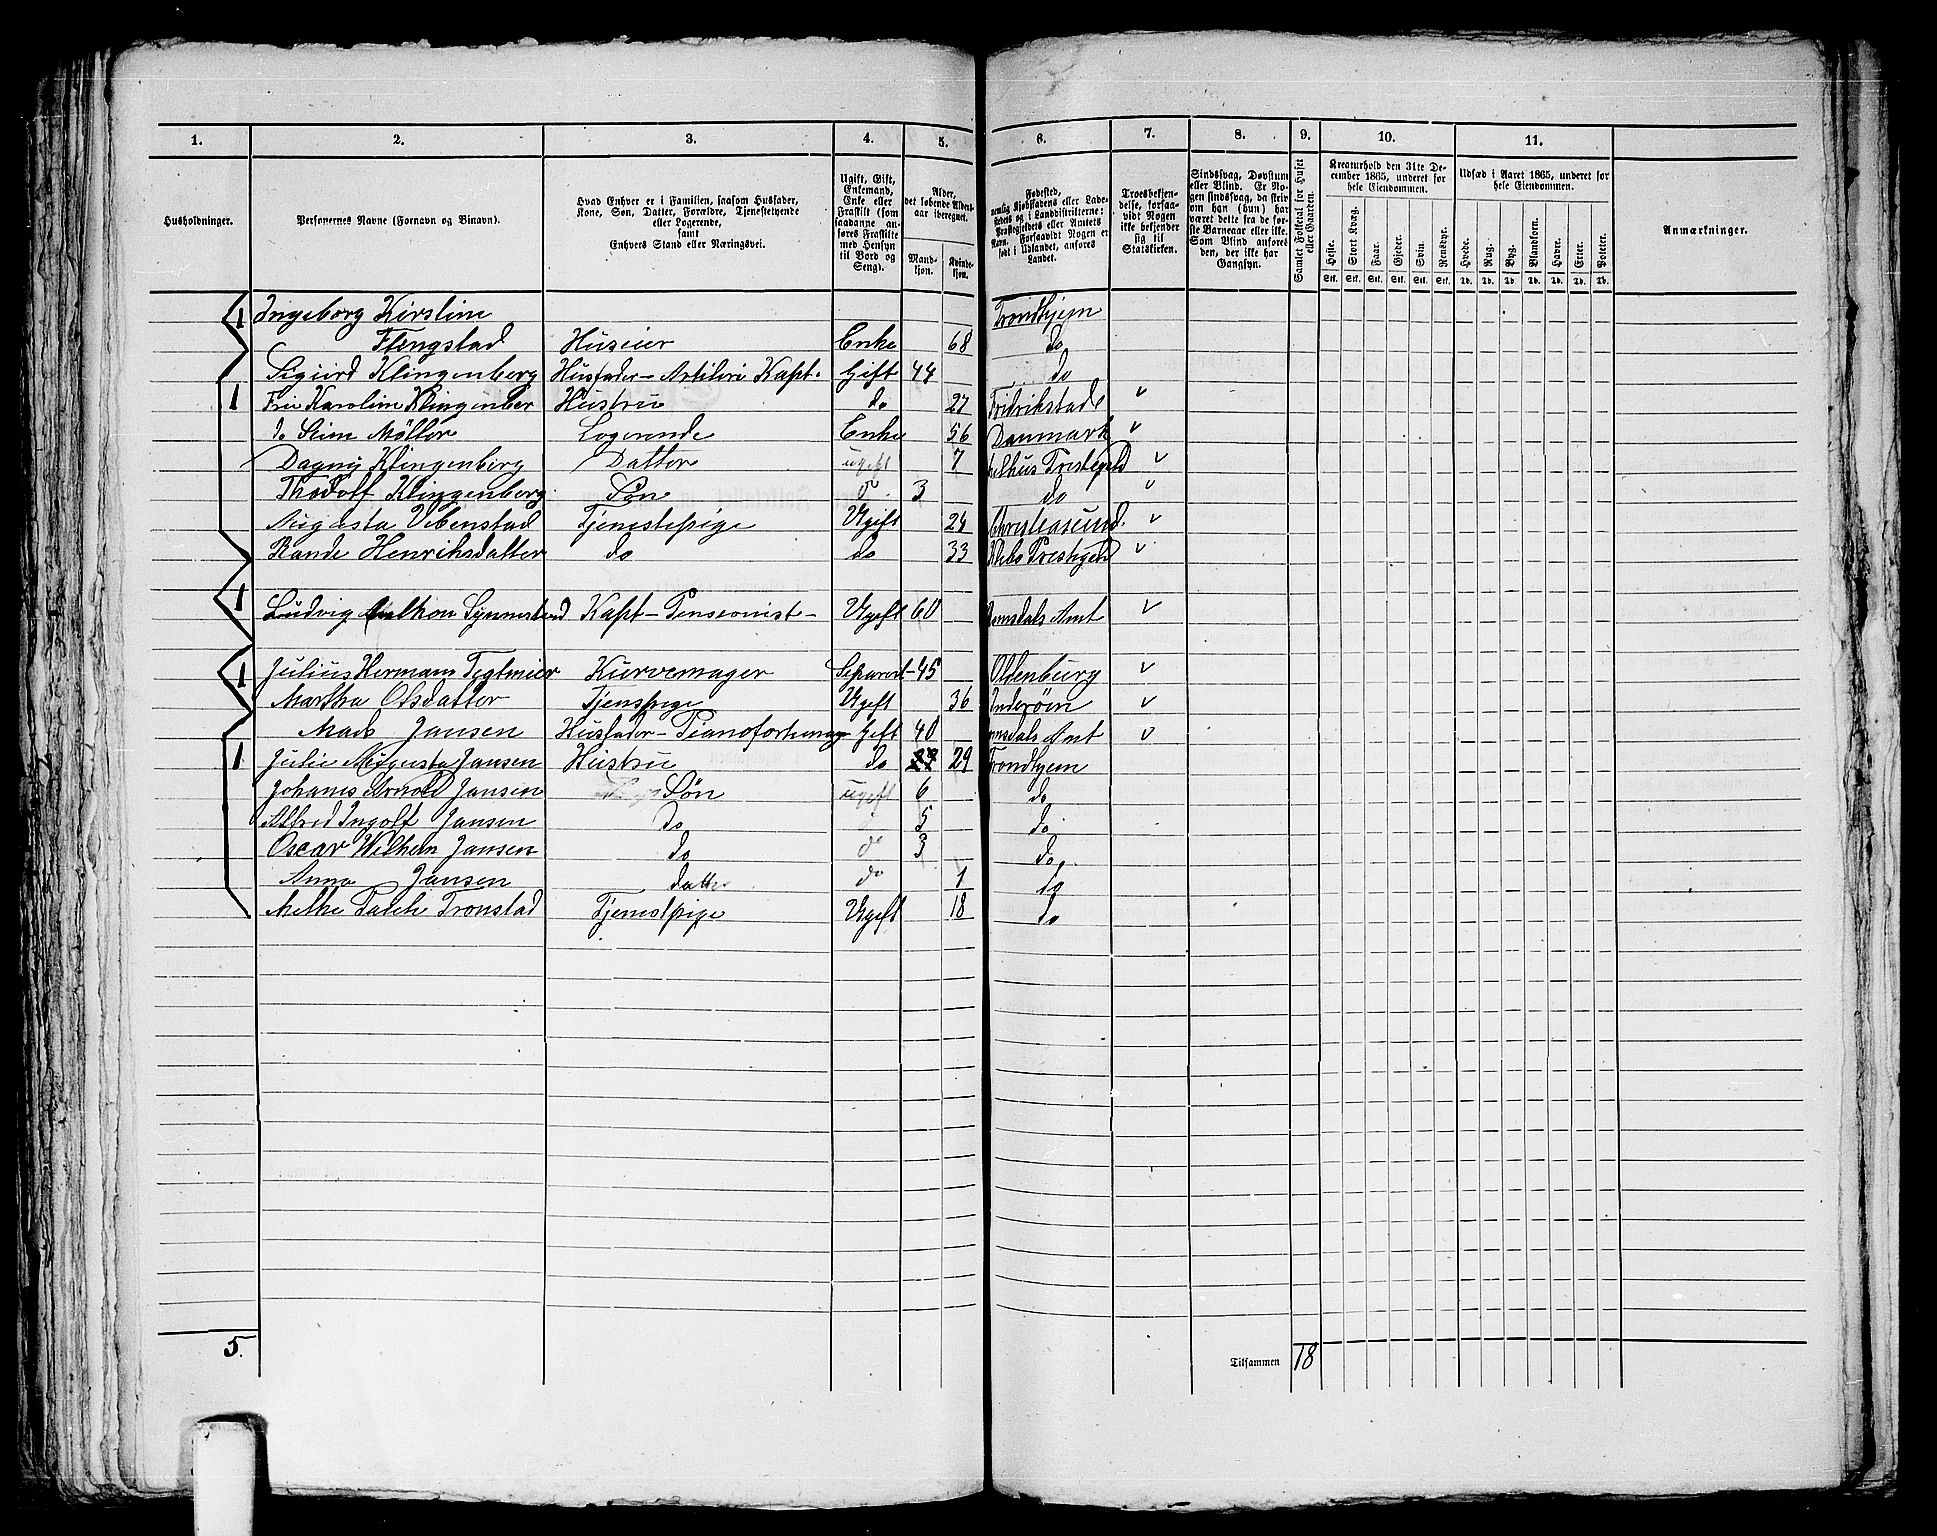 1. 2. 3. 4. 5. 6. 7. 8. 9. 10. 11.
Husholdninger.
Personernes Navne (Fornavn og Binavn).
Hvad Enhver er i Familien, saasom Husfader,
Kone, Søn, Datter, Forældre, Tjenestetyende
eller Logerende,
samt
Enhvers Stand eller Næringsvei.
Ugift, Gift,
Enkemand,
Enke eller
Fraskilt (som
saadanne an-
føres Fraskilte
med Hensyn
til Bord og
Seng).
Alder,
det løbende Alders-
aar iberegnet.
Mand-
kjøn.
Kvinde-
kjøn.
Fødested,
nemlig Kjøbstadens eller Lade-
stedets og i Landdistrikterne:
Præstegjeldets eller Amtets
Navn. Forsaavidt Nogen er
født i Udlandet, anføres
Landet.
Troesbekjen-
delse, forsaa-
vidt Nogen
ikke bekjender
sig til
Statskirken.
Sindssvag, Døvstum
eller Blind. Er No-
gen sindssvag, da skriv
om han (hun) har
været dette fra de før-
ste Barneaar eller ikke.
Som Blind anføres
den, der ikke har
Gangsyn.
Samlet Folketal for Huset
eller Gaarden.
Kreaturhold den 31te De-
cember 1865, underet for
hele Eiendommen.
Heste. Stort Kvæg. Faar. Gjeder. Svin. Rensdyr.
Stk. Stk. Stk. Stk. Stk. Stk.
Udsæd i Aaret 1865, underet for
hele Eiendommen.
Hvede. Rug. Byg. Blandkorn. Havre. Erter. Poteter.
Td. Td. Td. Td. Td. Td. Td.
Anmærkninger.
1 Ingeborg Kirstine Trondhjem
Flengstad Huseier Enke 68 do
Sigurd Klingenberg Husfader - Artileri Kapt. Gift 44 do
1 Fru Karoline Klingenber Hustru do 27 Fridrikstad
do Møller Logerende Enke 56 Danmark
Dagny Klingenberg Datter ugift 7
Thodolf Klingenberg Søn 3 do
Augusta Vebenstad Tjenestepige Ugift 24 Christiasund
Rande Henriksdatter do do 33 Klebo Prestegeld
1 Ludvig Kapt - Pensionist - Ugift 60 Romsdals Amt
1 Julius Herman Tegtmeier Kurvemager Separert 45 Oldenburg
Martha Olsdatter Tjenspige Ugift 36 Inderøen
Mads Jansen Husfader - Pianofortemager Gift 40 Romsdals Amt
1 Julie Augusta Jansen Hustru do 29 Trondhjem
Johanes Arnold Jansen Søn ugift 6 do
Alfred Ingolf Jansen do 5 do
Oscar Wilhelm Jansen do do 3 do
Anna Jansen datter do 1 do
Tronstad Tjenestpige Ugift 18 do
5.
Tilsammen 18